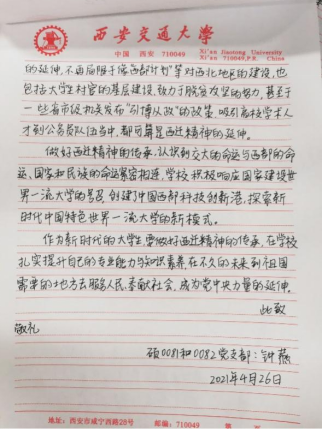 西安交通大学
中国 西安 710049
Xi'an Jiaotong University
Xi'an 710049, P.R. China
的延伸,不再局限于像"西部计划"等对西北地区的建设,也
包括大学生村官的基层建设,致力于脱贫攻坚的努力,甚至于
一些省市级机关发布"引博从政"的政策,吸引高校学术人
才到公务员队伍当中,都可算是西迁精神的延伸。
做好西迁精神的传承,认识到交大的命运与西部的命
运、国家和民族的命运紧密相连,学校积极响应国家建设世
界一流大学的号召,创建了中国西部科技创新港,探索新
时代中国特色世界一流大学的新模式。
作为新时代的大学生,要做好西迁精神的传承,在学校
扎实提升自己的专业能力与知识素养,在不久的未来到祖国
需要的地方去服务人民,奉献社会,成为党中央力量的延伸。
此致
敬礼
硕0081和0082党支部:钟燕
2021年4月26日
地址:西安市咸宁西路28号 邮编:710049 第 页